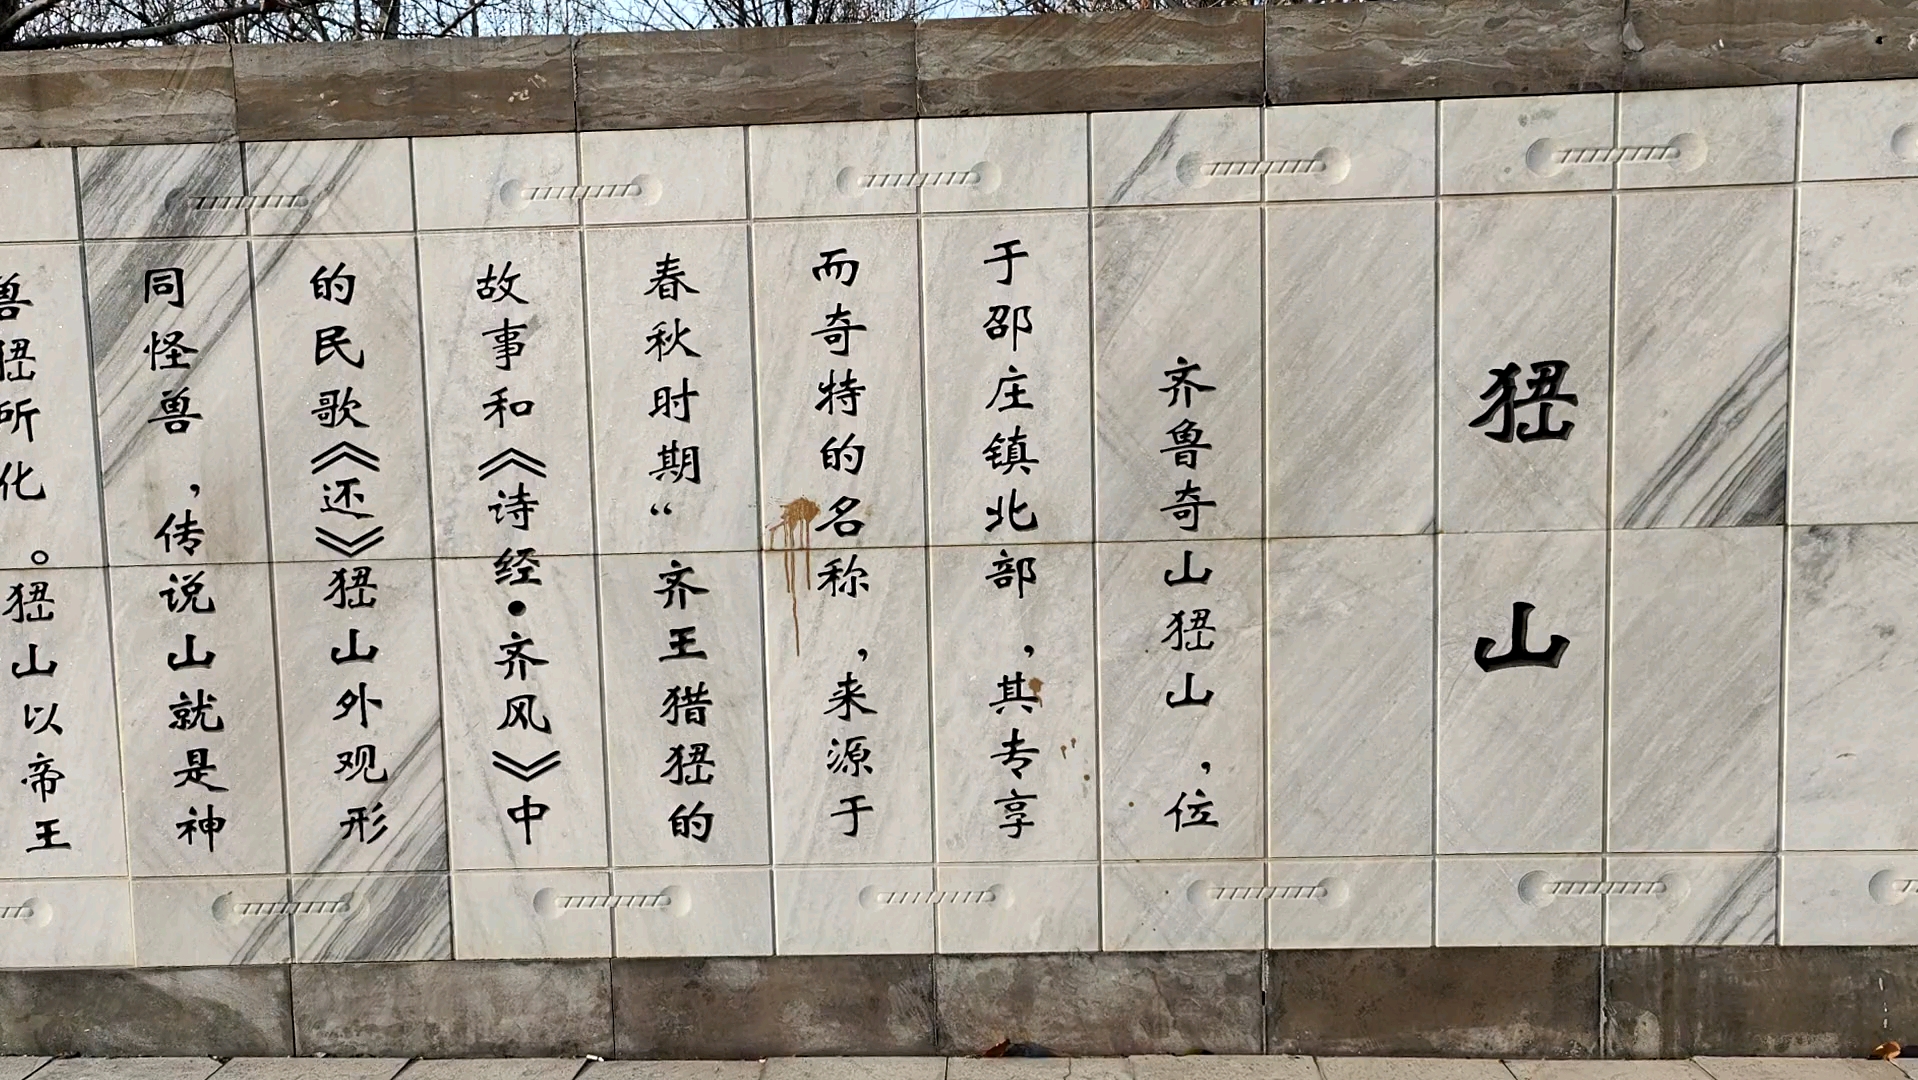 峱山
齐鲁奇山峱山，位
于邵庄镇北部，其专享
而奇特的名称，来源于
春秋时期“齐王猎峱的
故事和《诗经·齐风》中
的民歌《还》峱山外观形
同怪兽，传说山就是神
兽峱所化。峱山以帝王